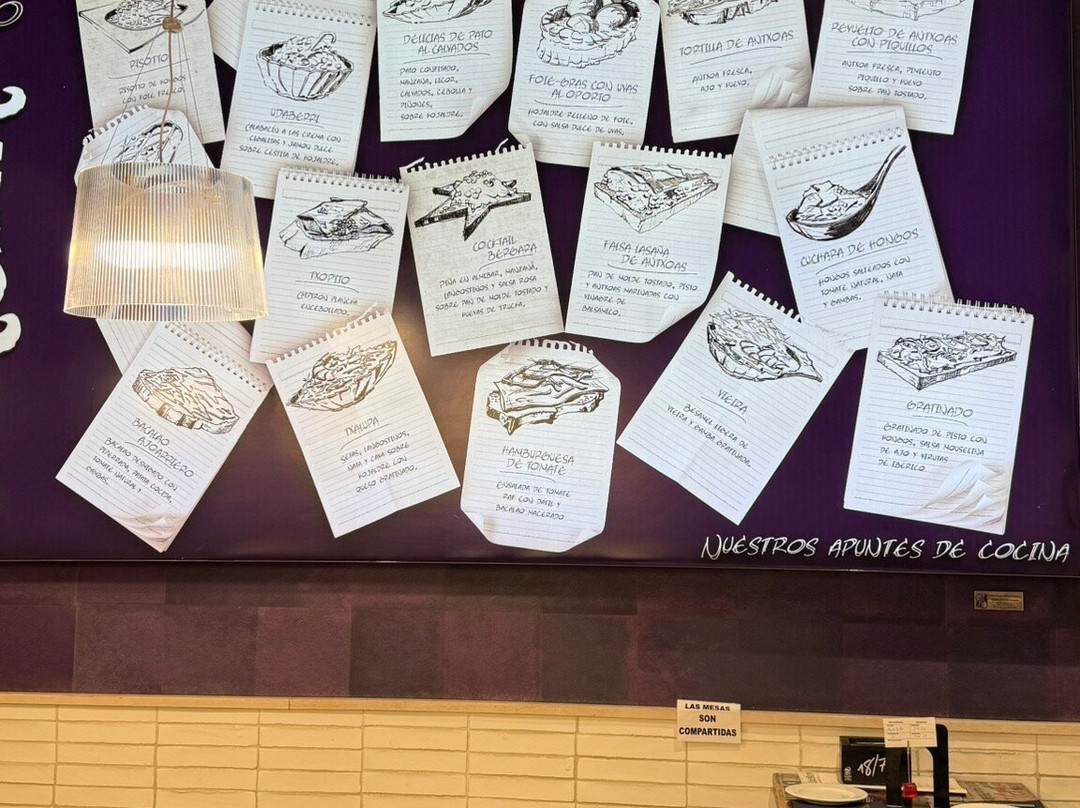 RISOTTO
RISOTTO DE HONGOS
CON FOIE FRESCO
UDABERRI
CALABACÍN A LAS CREMA CON
CEBALLITAS Y JAMÓN DULCE
SOBRE CESTITA DE HOJALDRE.
DELICIAS DE PATO
AL CALVADOS
PATO CONFITADO,
MANZANA, LICOR,
CALVADOS, CEBOLLA Y
PIÑONES,
SOBRE HOJALDRE.
FOIE-GRAS CON UVAS
AL OPORTO
HOJALDRE RELLENO DE FOIE,
CON SALSA DULCE DE UVAS.
TORTILLA DE ANTXOAS
ANTXOA FRESCA,
AJO Y HUEVO.
REVUELTO DE ANTXOAS
CON PIQUILLOS
ANTXOA FRESCA, PIMIENTO
PIQUILLO Y HUEVO
SOBRE PAN TOSTADO.
TXOPITO
CHIPIRÓN PLANCHA
ENCEBOLLADO.
COCKTAIL
BERGARA
PIÑA EN ALMIBAR, MANZANA,
LANGOSTINOS Y SALSA ROSA
SOBRE PAN DE MOLDE TOSTADO Y
HUEVAS DE TRUCHA.
FALSA LASAÑA
DE ANTXOAS
PAN DE MOLDE TOSTADO, PISTO
Y ANTXOAS MARINADAS CON
VINAGRE DE
BALSAMICO.
CUCHARA DE HONGOS
HONGOS SALTEADOS CON
TOMATE NATURAL, NATA
Y GAMBAS.
BACALAO
AJOARRIERO
BACALAO DESMIGADO CON
PIPERRADA, PATATA COCIDA,
TOMATE NATURAL Y
GAMBAS.
TXALUPA
SETAS, LANGOSTINOS,
NATA Y CAVA SOBRE
HOJALDRE CON
QUESO GRATINADO.
HAMBURGUESA
DE TOMATE
ENSALADA DE TOMATE
RAF CON DATIL Y
BACALAO MACERADO
VIEIRA
BESAMEL LIGERA DE
VIEIRA Y GAMBA GRATINADA.
GRATINADO
GRATINADO DE PISTO CON
HONGOS, SALSA MOUSELINA
DE AJO Y VIRUTAS
DE IBÉRICO
NUESTROS APUNTES DE COCINA
LAS MESAS
SON
COMPARTIDAS
18/7